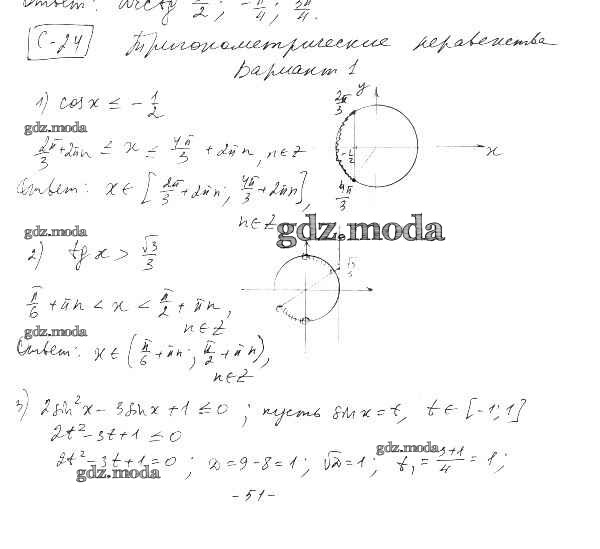 Ответ: π/2; -π/4; 3π/4.
С-24 Тригонометрические неравенства
Вариант 1
1) cos x ≤ -1/2
gdz.moda
2π/3 + 2πn ≤ x ≤ 4π/3 + 2πn, n∈Z
Ответ: x ∈ [2π/3 + 2πn; 4π/3 + 2πn],
n∈Z
y
2π/3
-1/2
x
4π/3
gdz.moda
gdz.moda
2) tg x > √3/3
√3/3
π/6 + πn < x < π/2 + πn,
n∈Z
gdz.moda
Ответ: x ∈ (π/6 + πn; π/2 + πn),
n∈Z
3) 2sin²x - 3sinx + 1 ≤ 0; пусть sinx = t, t ∈ [-1; 1]
2t² - 3t + 1 ≤ 0
gdz.moda
2t² - 3t + 1 = 0; D = 9 - 8 = 1; √D = 1; t₁ = 3+1/4 = 1;
gdz.moda
- 51 -